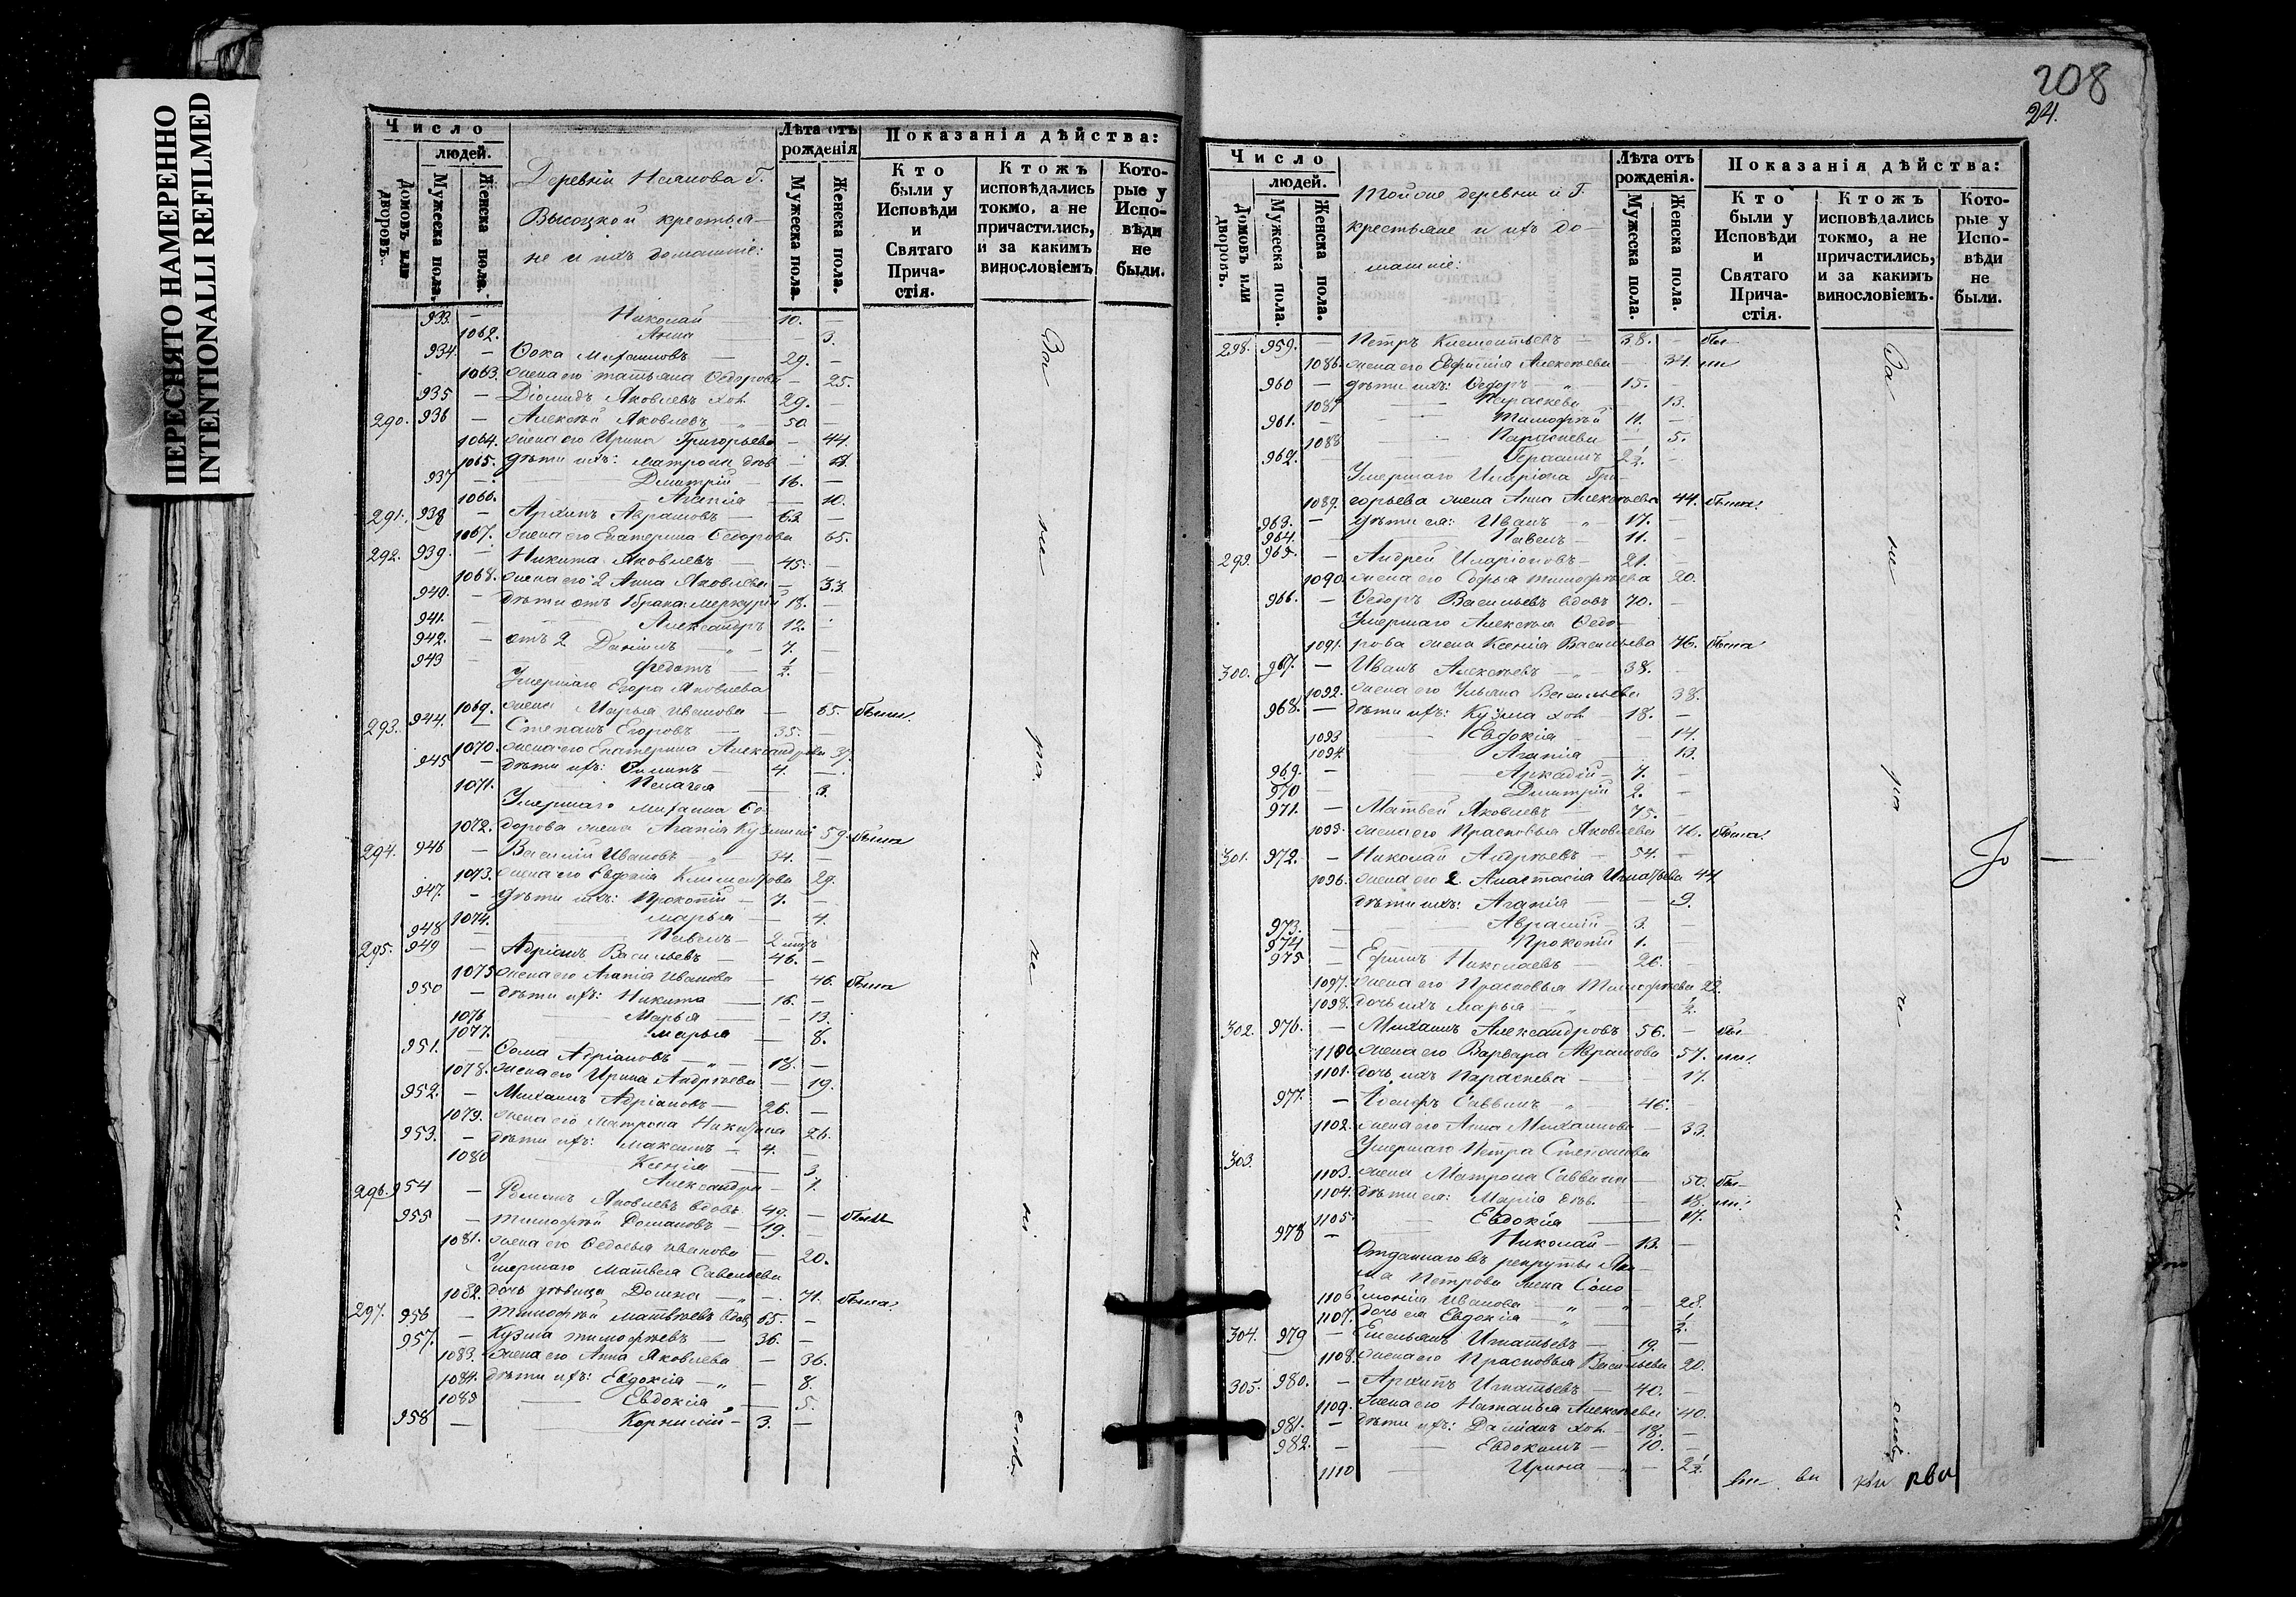 ПЕРЕСНЯТО НАМЕРЕННО
INTENTIONALLI REFILMED
Число
людей.
Домовъ или дворовъ.
Мужеска пола.
Женска пола.
Деревни
Высоцкой крестья-
не и ихъ домашніе:
Лѣта отъ рожденія
Мужеска пола.
Женска пола.
Показанія дѣйства:
Кто были у Исповѣди и Святаго Прича-стія.
Ктожъ исповѣдались токмо, а не причастились, и за какимъ винословіемъ
Кото-рые у Испо-вѣди не были.
933. — Николай — 10. —
1062. Анна — 3.
934. — Ѳока — 29. —
1063. жена его Татьяна Ѳедорова — 25.
935 — Діомидъ Яковлевъ хол. 29. —
290. 936 — Алексѣй Яковлевъ 50.
1064. жена его Ирина Григорьева — 44.
1065. дѣти ихъ: Матрона дѣв.
937 — Дмитрій — 16. —
1066. Агапія — 10.
291. 938 — Архипъ Аврамовъ — 63. —
1067. жена его Екатерина Ѳедорова 65.
292. 939. — Никита Яковлевъ — 45. —
1068. жена его 2 Анна Яковлева — 33.
940. — дѣти отъ 1 брака: Меркурій 18. —
941. — Александръ 12.
942. — отъ 2 Даніилъ — 7. —
943 Федотъ — ½. —
Умершаго Егора Яковлева
1069. жена Марья Иванова — 65. была.
293. 944. — Степанъ Егоровъ — 35. —
1070. жена его Екатерина Александрова 37.
945 — дѣти ихъ: Филипъ — 4. —
1071. — Пелагея — 3.
Умершаго Михаила Ѳе-
1072. дорова жена Агапія Кузмина 59. была
294. 946 — Василій Ивановъ — 34. —
1073. жена его Евдокія 29.
947. — дѣти ихъ: Прокопій — 7. —
1074. Марья — 4.
948 Павелъ — 2
295. 949 — Адріанъ Васильевъ — 46. —
1075 жена его Агапія Иванова — 46. была
950 — дѣти ихъ: Никита — 16. —
1076 Марья — 13.
1077. Марья — 8.
951. — Ѳома Адріановъ — 18. —
1078. жена его Ирина Андрѣева — 19.
952. — Михаилъ Адріановъ — 26. —
1079. жена его Матрона Никитина 26.
953. — дѣти ихъ: Максимъ — 4. —
1080 Ксенія — 3.
Александра — 1.
296. 954 — Романъ Яковлевъ вдовъ. 49. — былъ
955 — Тимофѣй Романовъ — 19. —
1081. жена его Ѳедосья Иванова — 20.
Умершаго Матвея Савельева
1082. дочь дѣвица Домна — 71. была.
297. 956 — Тимофѣй Матвѣевъ вдов. 65. —
957. — Кузма Тимофѣевъ — 36. —
1083. жена его Анна Яковлева — 36.
1084. дѣти ихъ: Евдокія — 8.
1085 Евдокія — 5.
958 — Корнилій — 3. —
За
не
не
208
24.
Число
людей.
Домовъ или дворовъ.
Мужеска пола.
Женска пола.
Тойже деревни и Г.
крестьяне и ихъ до-
машніе:
Лѣта отъ рожденія.
Мужеска пола.
Женска пола.
Показанія дѣйства:
Кто были у Исповѣди и Святаго Прича-стія.
Ктожъ исповѣдались токмо, а не причастились, и за какимъ винословіемъ.
Кото-рые у Испо-вѣди не были.
298. 959. — Петръ Клементьевъ — 38. — бы-
1086. жена его Евфимія Алексѣева 34. ли
960 — дѣти ихъ: Ѳедоръ — 15. —
1087 Параскева 13.
961. — Тимофѣй 11. —
1088 Параскева — 5.
962. Герасимъ 2½. —
Умершаго Иларіона Гри-
1089. горьева жена Анна Алексѣева 44. была.
963. — дѣти ея: Иванъ — 17. —
964. Павелъ — 11. —
293. 965. — Андрей Иларіоновъ — 21. —
1090. жена его Софья Тимофѣева 20.
966. — Ѳедоръ Васильевъ вдовъ 70. —
Умершаго Алексѣя Ѳедо-
1091. рова жена Ксенія Васильева 76. была
300. 967. — Иванъ Алексѣевъ — 38. —
1092. жена его Ульяна Васильева 38.
968. — дѣти ихъ: Кузма хол. — 18. —
1093 Евдокія — 14.
1094. Агапія — 13.
969. — Аркадій — 7. —
970 — Дмитрій 2. —
971. — Матвей Яковлевъ — 75. —
1095. жена его Прасковья Яковлева 76. была.
301. 972. — Николай Андрѣевъ — 54. —
1096. жена его 2. Анастасія Игнатьева 44
дѣти ихъ: Агапія — 9.
973. — Аврамій — 3. —
974 — Прокопій 1. —
975 — Ефимъ Николаевъ — 26. —
1097. жена его Прасковья Тимофѣева 22.
1098. дочь ихъ Марья — ½.
302. 976. — Михаилъ Александровъ 56. — бы-
1100. жена его Варвара Аврамова 57. ли.
1101. дочь ихъ Параскева — 17.
977. — Саввинъ — 46. —
1102. жена его Анна Михаилова — 33.
303. Умершаго Петра Степанова
1103. жена Матрона Саввина — 50. бы-
1104. дѣти ея: Марія дѣв. — 18. ли.
1105. Евдокія — 17.
978 — Николай — 13. —
Отданнаго въ рекруты
Петрова жена Соло-
1106 монія Иванова — 28.
1107. дочь ея Евдокія — ½.
304. 979 — Емельянъ Игнатьевъ — 19. —
1108. жена его Прасковья Васильева 20.
305. 980. — Архипъ Игнатьевъ — 40. —
1109. жена его Наталья Алексѣева 40.
981. — дѣти ихъ: Даміанъ хол. — 18. —
982. — Евдокимъ — 10. —
1110 Ирина — 2½.
За
не
не